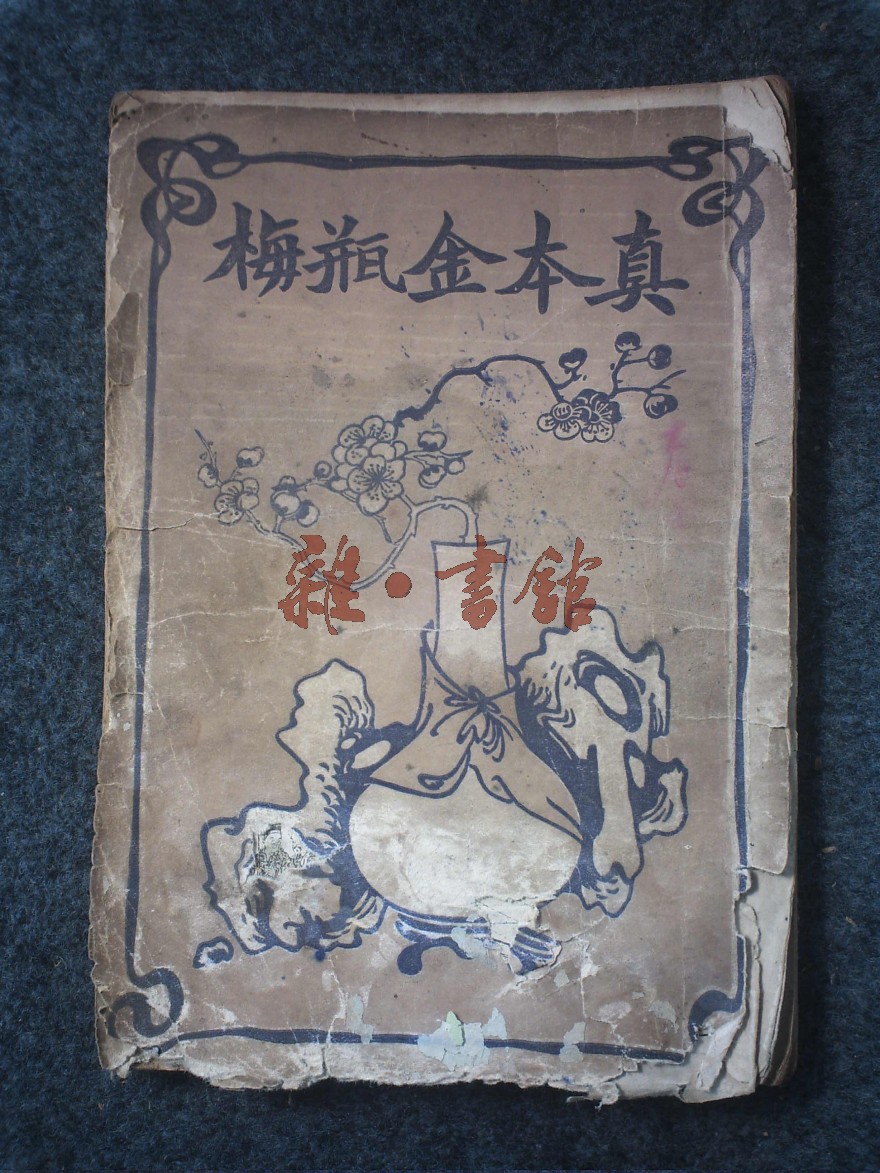 真本金瓶梅
雜·書館